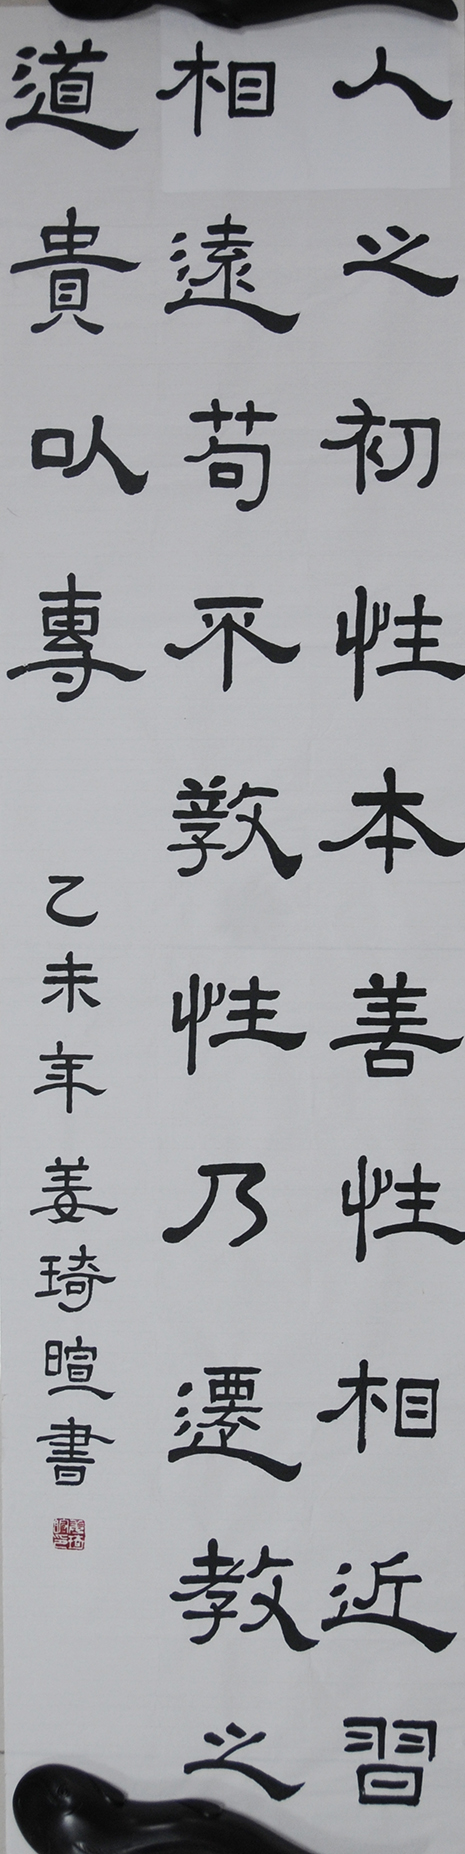 人之初性本善性相近習
相遠苟不敎性乃遷教之
道貴以專
乙未年姜琦暄書